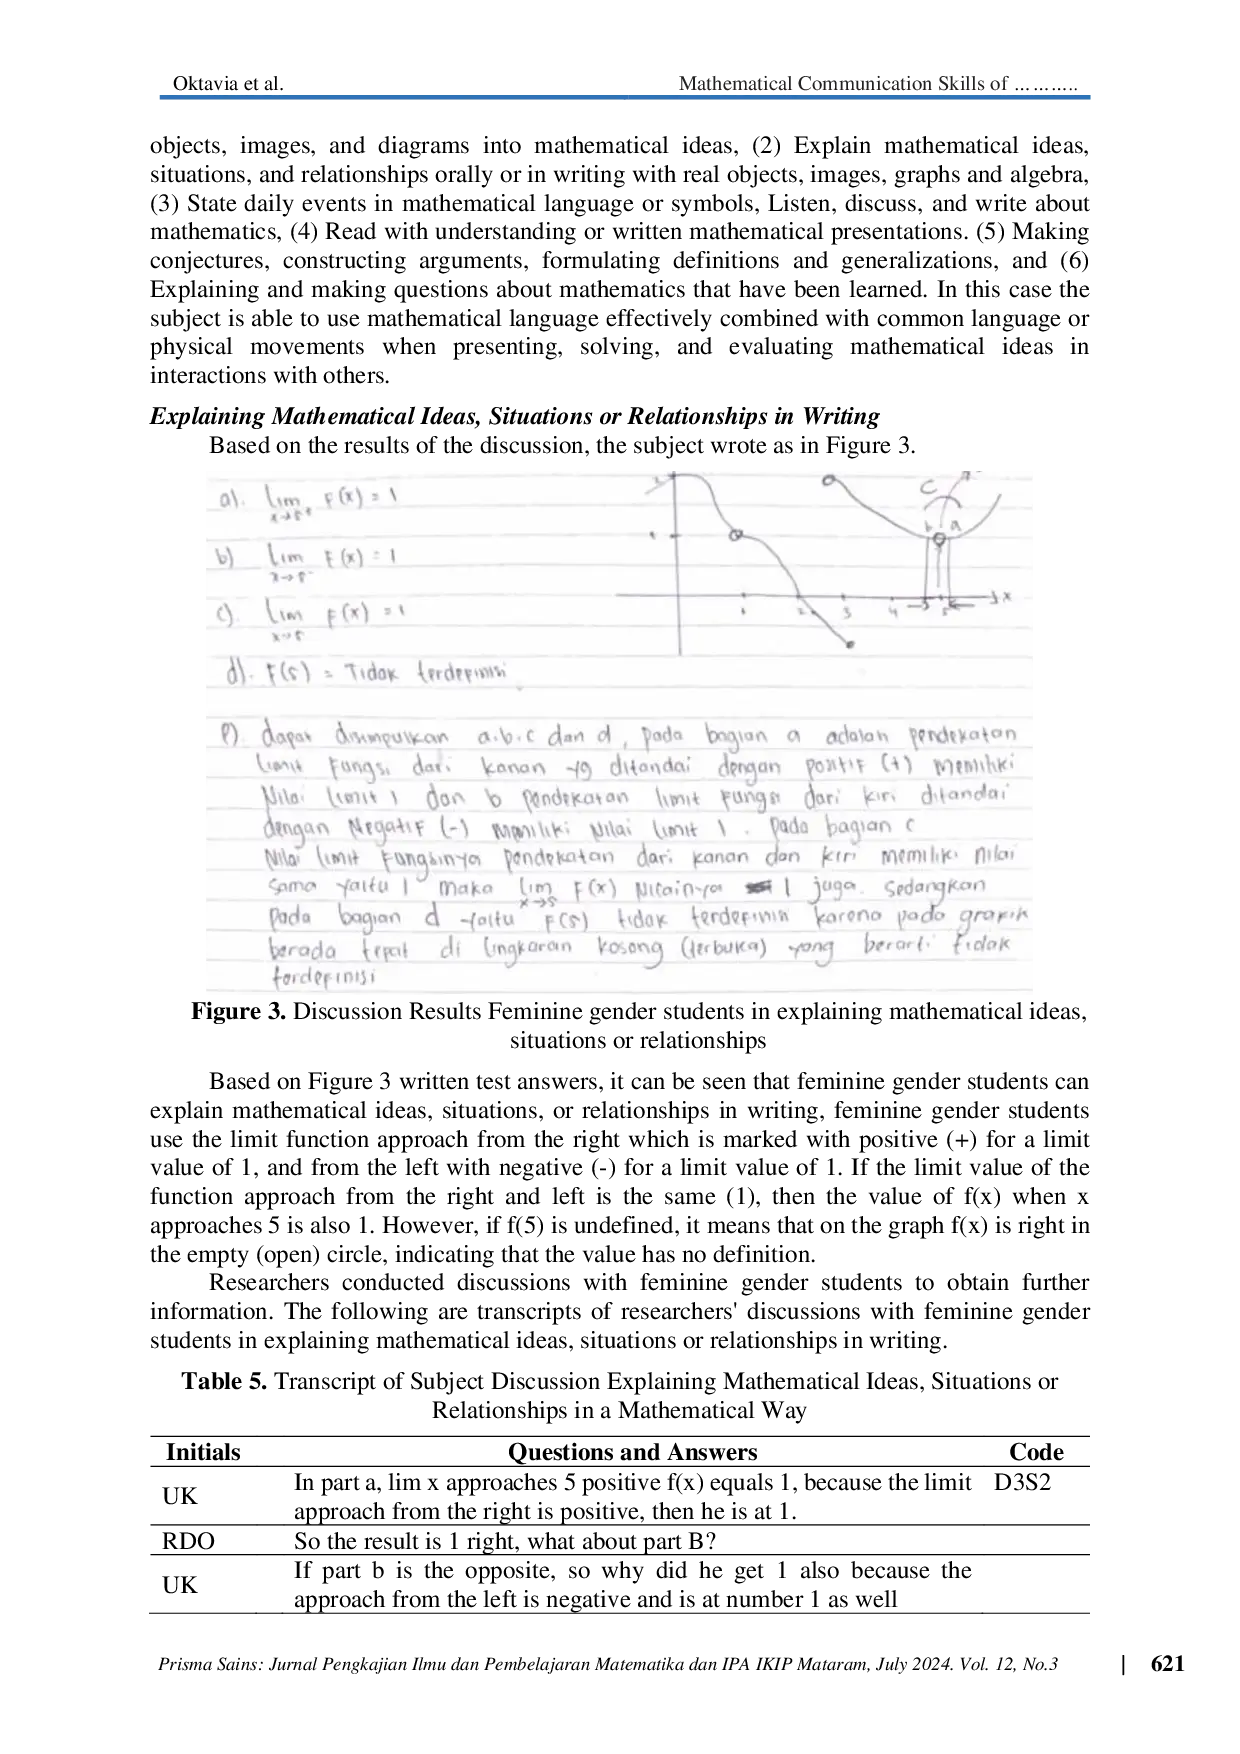 Oktavia et al. Mathematical Communication Skills of ………..
objects, images, and diagrams into mathematical ideas, (2) Explain mathematical ideas,
situations, and relationships orally or in writing with real objects, images, graphs and algebra,
(3) State daily events in mathematical language or symbols, Listen, discuss, and write about
mathematics, (4) Read with understanding or written mathematical presentations. (5) Making
conjectures, constructing arguments, formulating definitions and generalizations, and (6)
Explaining and making questions about mathematics that have been learned. In this case the
subject is able to use mathematical language effectively combined with common language or
physical movements when presenting, solving, and evaluating mathematical ideas in
interactions with others.
Explaining Mathematical Ideas, Situations or Relationships in Writing
Based on the results of the discussion, the subject wrote as in Figure 3.
a). lim F(x) = 1
x→5+
b) lim F(x) = 1
x→5-
c). lim F(x) = 1
x→5
d). F(5) = Tidak terdefinisi
1 2 3 4 5 x
C b a
e). dapat disimpulkan a.b.c dan d, pada bagian a adalah pendekatan
limit fungsi dari kanan yg ditandai dengan positif (+) memiliki
Nilai limit 1 dan b pendekatan limit fungsi dari kiri ditandai
dengan Negatif (-) memiliki Nilai limit 1. Pada bagian c
Nilai limit fungsinya pendekatan dari kanan dan kiri memiliki nilai
sama yaitu 1 maka lim F(x) Nilainya 1 juga. Sedangkan
x→5
pada bagian d yaitu F(5) tidak terdefinisi karena pada grafik
berada tepat di lingkaran kosong (terbuka) yang berarti tidak
terdefinisi
Figure 3. Discussion Results Feminine gender students in explaining mathematical ideas,
situations or relationships
Based on Figure 3 written test answers, it can be seen that feminine gender students can
explain mathematical ideas, situations, or relationships in writing, feminine gender students
use the limit function approach from the right which is marked with positive (+) for a limit
value of 1, and from the left with negative (-) for a limit value of 1. If the limit value of the
function approach from the right and left is the same (1), then the value of f(x) when x
approaches 5 is also 1. However, if f(5) is undefined, it means that on the graph f(x) is right in
the empty (open) circle, indicating that the value has no definition.
Researchers conducted discussions with feminine gender students to obtain further
information. The following are transcripts of researchers' discussions with feminine gender
students in explaining mathematical ideas, situations or relationships in writing.
Table 5. Transcript of Subject Discussion Explaining Mathematical Ideas, Situations or
Relationships in a Mathematical Way
Initials Questions and Answers Code
UK In part a, lim x approaches 5 positive f(x) equals 1, because the limit D3S2
approach from the right is positive, then he is at 1.
RDO So the result is 1 right, what about part B?
UK If part b is the opposite, so why did he get 1 also because the
approach from the left is negative and is at number 1 as well
Prisma Sains: Jurnal Pengkajian Ilmu dan Pembelajaran Matematika dan IPA IKIP Mataram, July 2024. Vol. 12, No.3 | 621